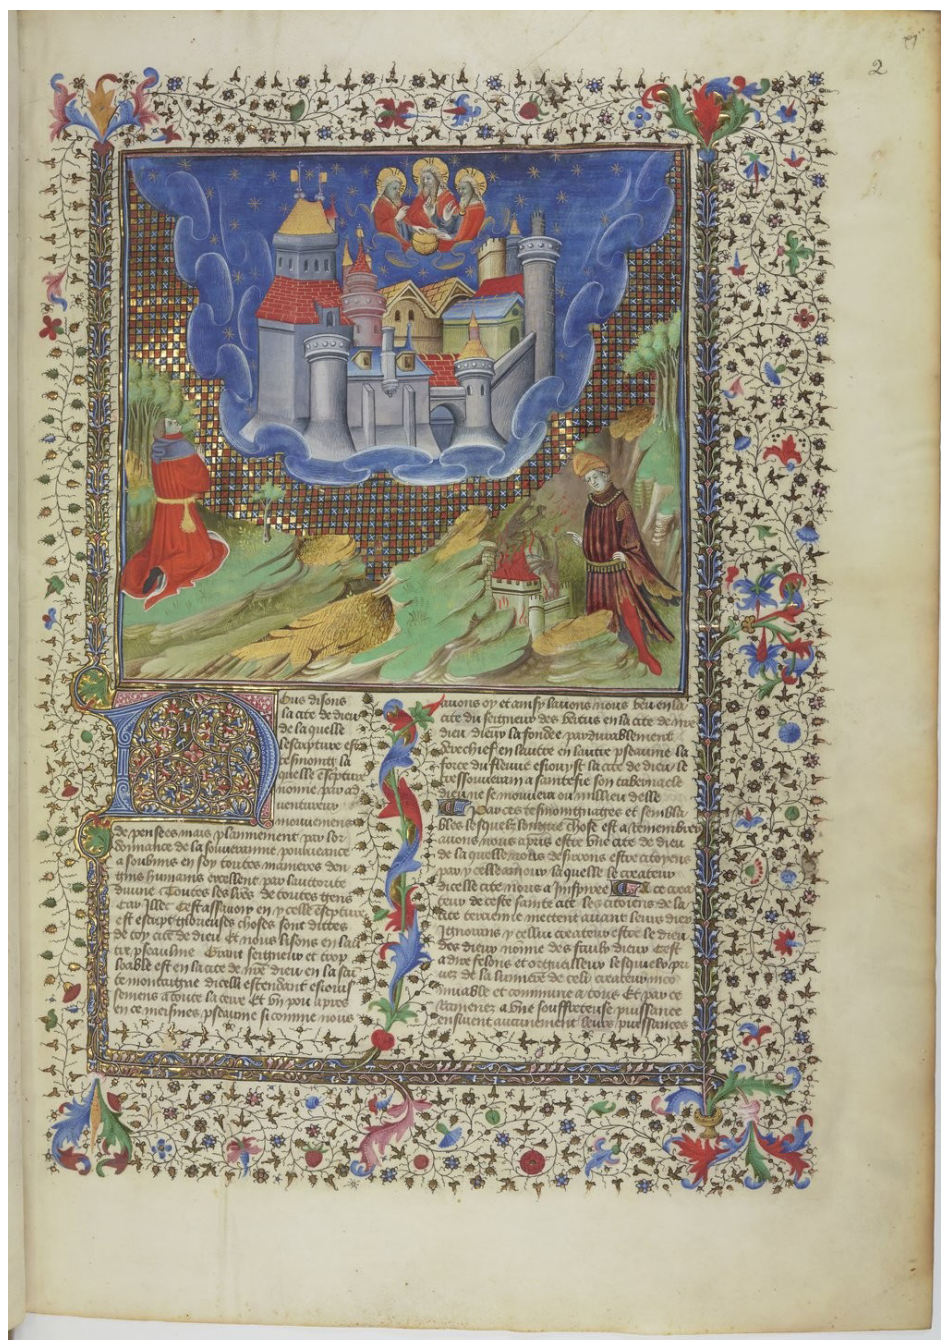 2
Nous disons
la cite de dieu
de la quelle
lescripture est
tesmoing la
quelle escripture
nonne par ad
uentureux
mouuemens
de pensees mais plainnement par lor
donnance de la souueraine pourueance
a soubmis en soy toutes manieres den
gins humains excellent par lauctorite
diuine Toutes les lires de toutes gens
Car illec Cest assauoir en ycelle escripture
est escript glorieuses choses sont dittes
de toy cite de dieu Et nous lisons en laul
tre pseaulme Grant seigneur et trop
loable est en la cite de nre dieu en la sai
te montaigne dicelli estendant esiouis
semens a toute la terre Et un pou apres
en ce meismes pseaume si comme nous
auons oy et ainsy lauons nous veu en la
cite du seigneur des vertus en la cite de nre
dieu dieu la fondee pardurablement
derechief en lautre en lautre pseaume la
force du fleuue esiouyst la cite de dieu le
tressouuerain a saintefie son tabernacle
dieu ne se mouuera ou millieu delle
Par ces tesmoingnages et sembla
bles lesquelz longue chose est a remembrer
auons nous apris estre une cite de dieu
de la quelle nous desirons estre citoyens
par ycelle amour la quelle le createur
dicelle cite nous a inspiree A ce crea
teur de ceste sainte cite les citoiens de la
cite terrienne mettent auant leurs diex
Ignorans ycellui createur estre le dieu
des dieux nomme des faulx dieux Cest
a dire felons et orgueilleux lesquelx pri
uez de la lumiere de celi createur inco
muiable et commune a tous Et par ce
ramenez a une souffreteuse puissance
ensiuent aucunement leurs puissances